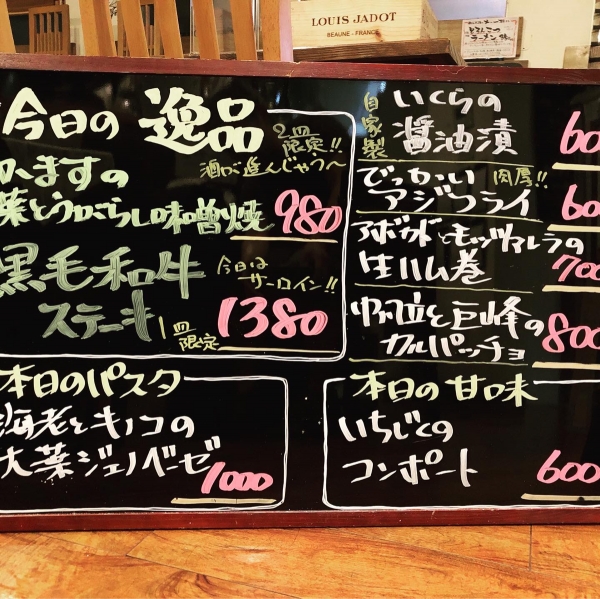 LOUIS JADOT
BEAUNE - FRANCE
今日の 逸品
2皿限定!!
酒が進んじゃう〜
かますの
葉とうがらし味噌焼 980
黒毛和牛
ステーキ
今日は
サーロイン!!
1皿限定 1380
本日のパスタ
海老とキノコの
大葉ジェノベーゼ
1000
自家製
いくらの
醤油漬
でっかい 肉厚!!
アジフライ
アボカドとモッツァレラの
生ハム巻 700
帆立と巨峰の
カルパッチョ 800
本日の甘味
いちじくの
コンポート 600